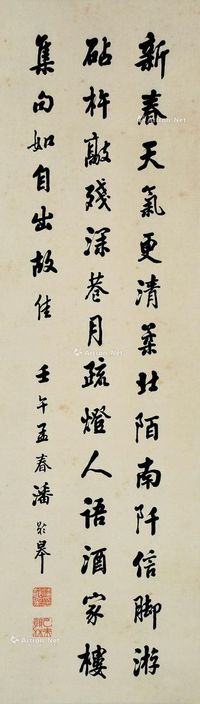 新春天氣更清柔北陌南阡信脚游
砧杵敲殘深巷月疏燈人語酒家樓
集句如自出故佳 壬午孟春潘齡皋
Artron.Net